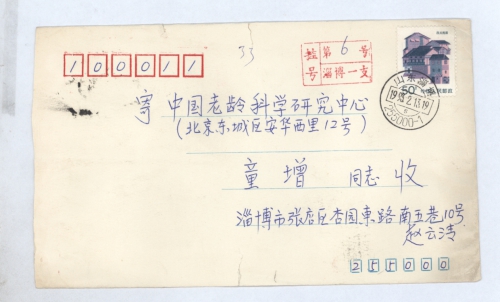 33
挂 第 6 号
号 淄博一支
100011
50分 中国人民邮政
山东淄博
1993.2.13.19
255000-1
寄 中国老龄科学研究中心
(北京东城区安华西里12号)
童增 同志 收
淄博市张店区杏园東路南五巷10号
赵云涛
255000